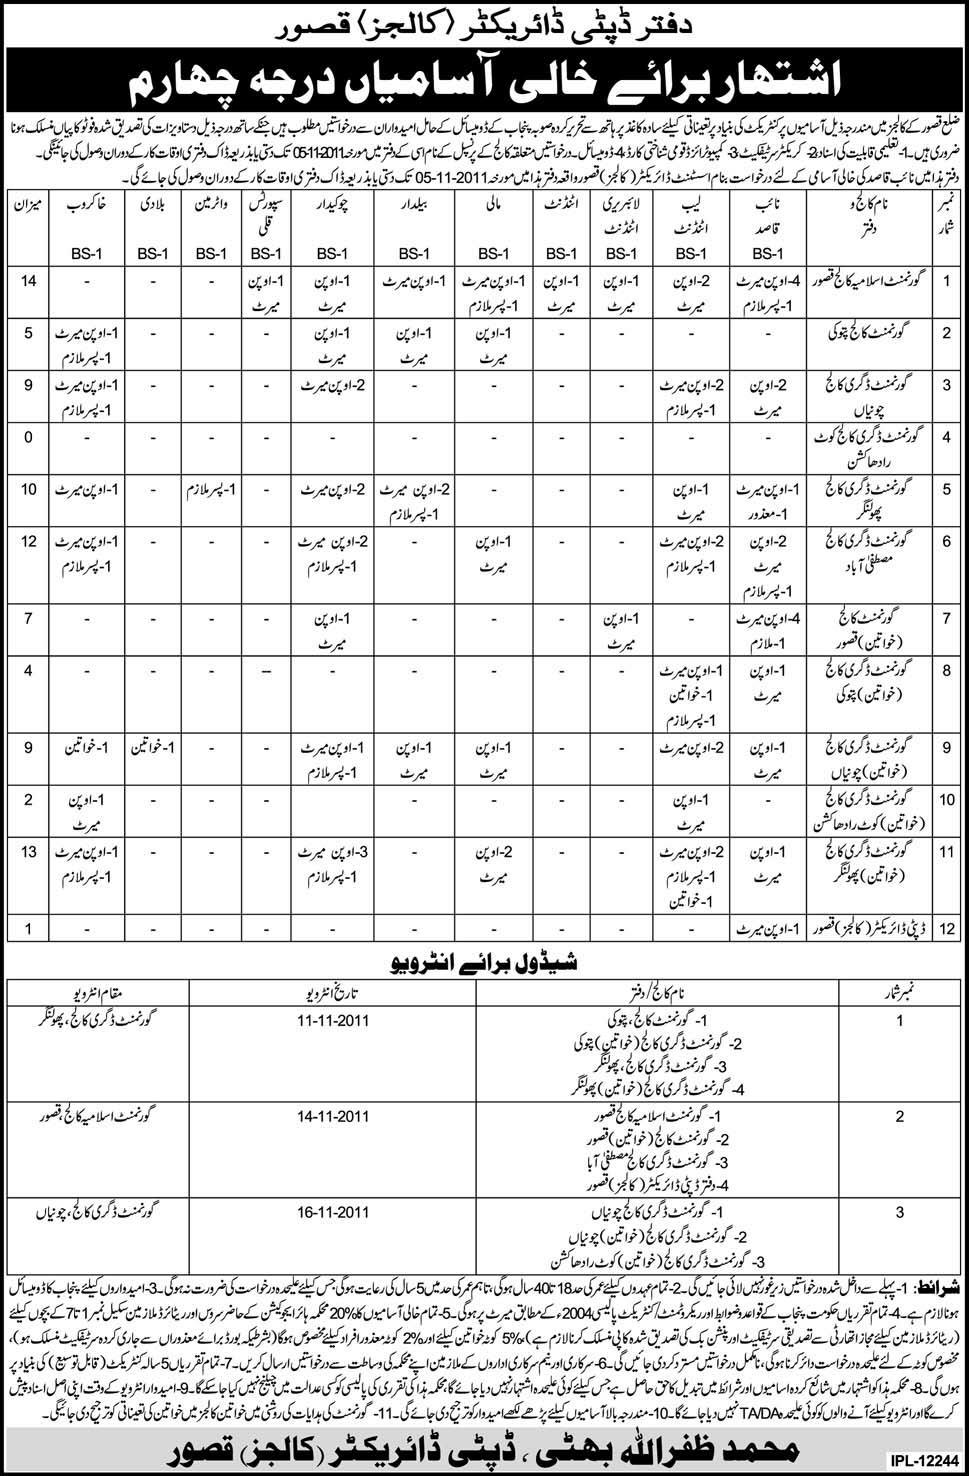 دفتر ڈپٹی ڈائریکٹر (کالجز) قصور
اشتہار برائے خالی آسامیاں درجہ چہارم
ضلع قصور کے کالجز میں مندرجہ ذیل آسامیوں پر کنٹریکٹ کی بنیاد پر تعیناتی کیلئے سادہ کاغذ پر ہاتھ سے تحریر کردہ صوبہ پنجاب کے ڈومیسائل کے حامل امیدواران سے درخواستیں مطلوب ہیں جنکے ساتھ درجہ ذیل دستاویزات کی تصدیق شدہ فوٹو کاپیاں منسلک ہونا
ضروری ہیں۔ 1- تعلیمی قابلیت کی اسناد 2- کریکٹر سرٹیفکیٹ 3- کمپیوٹرائزڈ قومی شناختی کارڈ 4- ڈومیسائل۔ درخواستیں متعلقہ کالج کے پرنسپل کے نام اسی کے دفتر میں مورخہ 05-11-2011 تک دستی یا بذریعہ ڈاک دفتری اوقات کار کے دوران وصول کی جائینگی۔
دفتر ہذا میں نائب قاصد کی خالی آسامی کے لئے درخواست بنام اسسٹنٹ ڈائریکٹر (کالجز) قصور واقعہ دفتر ہذا میں مورخہ 05-11-2011 تک دستی یا بذریعہ ڈاک دفتری اوقات کار کے دوران وصول کی جائے گی۔
نمبر شمار | نام کالج و دفتر | نائب قاصد BS-1 | لیب اٹنڈنٹ BS-1 | لائبریری اٹنڈنٹ BS-1 | اٹنڈنٹ BS-1 | مالی BS-1 | بیلدار BS-1 | چوکیدار BS-1 | سپورٹس قلی BS-1 | واٹرمین BS-1 | بلادی BS-1 | خاکروب BS-1 | میزان
1 | گورنمنٹ اسلامیہ کالج قصور | 4-اوپن میرٹ 1-پسر ملازم | 2-اوپن میرٹ | 1-اوپن میرٹ | 1-اوپن میرٹ | 1-اوپن میرٹ 1-پسر ملازم | 1-اوپن میرٹ | 1-اوپن میرٹ | 1-اوپن میرٹ | - | - | - | 14
2 | گورنمنٹ کالج پتوکی | - | - | - | - | 1-اوپن میرٹ | 1-اوپن میرٹ | 1-اوپن میرٹ | - | - | - | 1-اوپن میرٹ 1-پسر ملازم | 5
3 | گورنمنٹ ڈگری کالج چونیاں | 2-اوپن میرٹ | 2-اوپن میرٹ 1-پسر ملازم | - | - | - | - | 2-اوپن میرٹ | - | - | - | 1-اوپن میرٹ 1-پسر ملازم | 9
4 | گورنمنٹ ڈگری کالج کوٹ رادھا کشن | - | - | - | - | - | - | - | - | - | - | - | 0
5 | گورنمنٹ ڈگری کالج پھولنگر | 1-اوپن میرٹ 1-معذور | 1-اوپن میرٹ | - | - | - | 2-اوپن میرٹ 1-پسر ملازم | 2-اوپن میرٹ | - | 1-پسر ملازم | - | 1-اوپن میرٹ | 10
6 | گورنمنٹ ڈگری کالج مصطفیٰ آباد | 2-اوپن میرٹ 1-پسر ملازم | 2-اوپن میرٹ 1-پسر ملازم | - | - | 1-اوپن میرٹ | - | 2-اوپن میرٹ 1-پسر ملازم | - | - | - | 1-اوپن میرٹ 1-پسر ملازم | 12
7 | گورنمنٹ کالج (خواتین) قصور | 4-اوپن میرٹ 1-ملازم | - | 1-اوپن میرٹ | - | - | - | 1-اوپن میرٹ | - | - | - | - | 7
8 | گورنمنٹ ڈگری کالج (خواتین) پتوکی | 1-اوپن میرٹ | 1-اوپن میرٹ 1-خواتین 1-پسر ملازم | - | - | - | - | - | -- | - | - | - | 4
9 | گورنمنٹ ڈگری کالج (خواتین) چونیاں | 1-اوپن میرٹ | 2-اوپن میرٹ | - | - | 1-اوپن میرٹ | 1-اوپن میرٹ | 1-اوپن میرٹ 1-پسر ملازم | - | - | 1-خواتین | 1-خواتین | 9
10 | گورنمنٹ ڈگری کالج (خواتین) کوٹ رادھا کشن | - | 1-اوپن میرٹ | - | - | - | - | - | - | - | - | 1-اوپن میرٹ | 2
11 | گورنمنٹ ڈگری کالج (خواتین) پھولنگر | 1-اوپن میرٹ | 2-اوپن میرٹ 1-پسر ملازم 1-خواتین | - | - | 2-اوپن میرٹ | - | 3-اوپن میرٹ 1-پسر ملازم | - | - | - | 1-اوپن میرٹ 1-پسر ملازم | 13
12 | ڈپٹی ڈائریکٹر (کالجز) قصور | 1-اوپن میرٹ | - | - | - | - | - | - | - | - | - | - | 1
شیڈول برائے انٹرویو
نمبر شمار | نام کالج / دفتر | تاریخ انٹرویو | مقام انٹرویو
1 | 1- گورنمنٹ کالج، پتوکی | 11-11-2011 | گورنمنٹ ڈگری کالج، پھولنگر
2- گورنمنٹ ڈگری کالج (خواتین) پتوکی
3- گورنمنٹ ڈگری کالج، پھولنگر
4- گورنمنٹ ڈگری کالج (خواتین) پھولنگر
2 | 1- گورنمنٹ اسلامیہ کالج قصور | 14-11-2011 | گورنمنٹ اسلامیہ کالج، قصور
2- گورنمنٹ کالج (خواتین) قصور
3- گورنمنٹ ڈگری کالج مصطفیٰ آبا
4- دفتر ڈپٹی ڈائریکٹر (کالجز) قصور
3 | 1- گورنمنٹ ڈگری کالج چونیاں | 16-11-2011 | گورنمنٹ ڈگری کالج، چونیاں
2- گورنمنٹ ڈگری کالج (خواتین) چونیاں
3- گورنمنٹ ڈگری کالج (خواتین) کوٹ رادھا کشن
شرائط: 1- پہلے سے داخل شدہ درخواستیں زیر غور نہیں لائی جائیں گی۔ 2- تمام عہدوں کیلئے عمر کی حد 18 تا 40 سال ہوگی، تاہم عمر کی حد میں 5 سال کی رعایت ہوگی جس کیلئے علیحدہ درخواست کی ضرورت نہ ہوگی۔ 3- امیدواروں کیلئے پنجاب کا ڈومیسائل
ہونا لازم ہے۔ 4- تمام تقرریاں حکومت پنجاب کے قواعد و ضوابط اور ریکروٹمنٹ / کنٹریکٹ پالیسی 2004ء کے مطابق میرٹ پر ہوگی۔ 5- تمام خالی آسامیوں کا 20% محکمہ ہائر ایجوکیشن کے حاضر سروس اور ریٹائرڈ ملازمین سکیل نمبر 1 تا 7 کے بچوں کیلئے
(ریٹائرڈ ملازمین کیلئے مجاز اتھارٹی سے تصدیقی سرٹیفکیٹ اور پنشن بک کی تصدیق شدہ کاپی منسلک کرنا لازم ہے)، 5% کوٹہ خواتین کیلئے اور 2% کوٹہ معذور افراد کیلئے مخصوص ہوگا (بشرطیکہ بورڈ برائے معذوراں سے جاری کردہ سرٹیفکیٹ منسلک ہو)،
مخصوص کوٹہ کے لئے علیحدہ درخواست دائر کرنا ہوگی، نامکمل درخواستیں مسترد کر دی جائیں گی۔ 6- سرکاری اور نیم سرکاری اداروں کے ملازمین اپنے محکمہ کی وساطت سے درخواستیں ارسال کریں۔ 7- تمام تقرریاں 5 سالہ کنٹریکٹ (قابل توسیع) کی بنیاد پر
ہوں گی۔ 8- محکمہ ہذا کو اشتہار میں شائع کردہ اسامیوں اور شرائط میں تبدیلی کا حق حاصل ہے جس کیلئے کوئی علیحدہ اشتہار نہیں دیا جائے گا، محکمہ ہذا کی تقرری کی پالیسی کو کسی عدالت میں چیلنج نہیں کیا جا سکے گا۔ 9- امیدوار انٹرویو کے وقت اپنی اصل اسناد پیش
کرے گا اور انٹرویو کیلئے آنے والوں کو کوئی علیحدہ TA/DA نہیں دیا جائے گا۔ 10- مندرجہ بالا آسامیوں کیلئے پڑھے لکھے امیدوار کو ترجیح دی جائے گی۔ 11- گورنمنٹ کی ہدایات کی روشنی میں خواتین کالجز میں خواتین کی تعیناتی کو ترجیح دی جائیگی۔
محمد ظفر اللہ بھٹی، ڈپٹی ڈائریکٹر (کالجز) قصور
IPL-12244